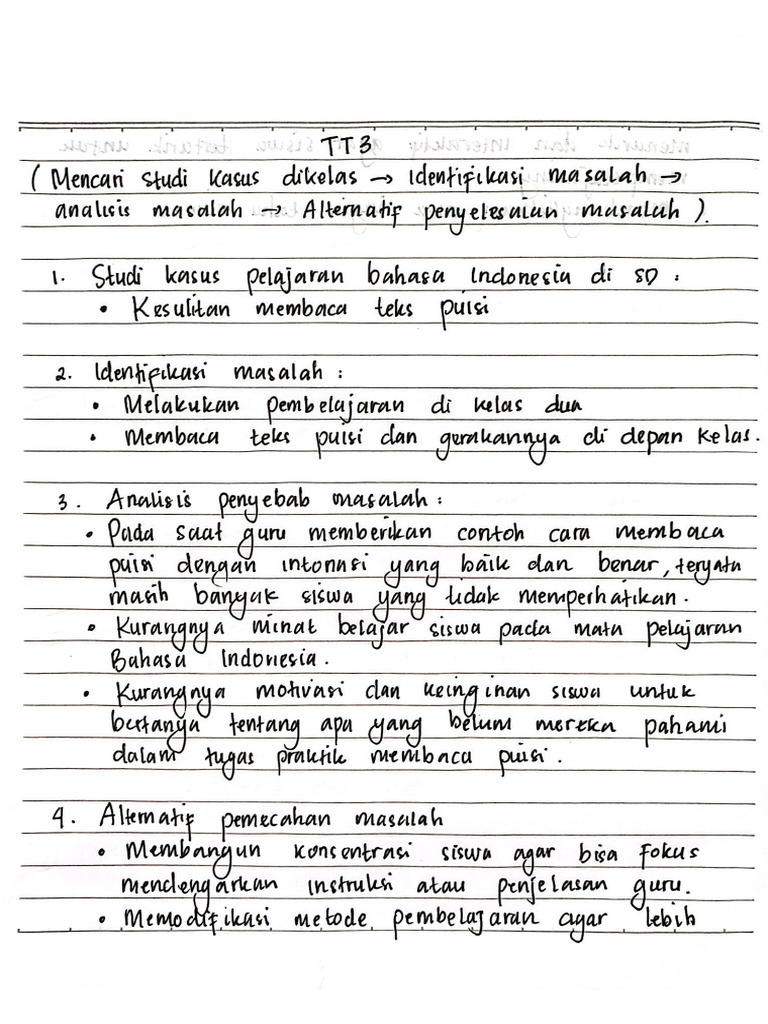 TT3
( Mencari studi kasus dikelas → Identifikasi masalah →
analisis masalah → Alternatif penyelesaian masalah ).
1. Studi kasus pelajaran bahasa Indonesia di SD :
• Kesulitan membaca teks puisi
2. Identifikasi masalah :
• Melakukan pembelajaran di kelas dua
• Membaca teks puisi dan gerakannya di depan kelas.
3. Analisis penyebab masalah :
• Pada saat guru memberikan contoh cara membaca
puisi dengan intonasi yang baik dan benar, teryata
masih banyak siswa yang tidak memperhatikan.
• Kurangnya minat belajar siswa pada mata pelajaran
Bahasa Indonesia.
• Kurangnya motivasi dan keinginan siswa untuk
bertanya tentang apa yang belum mereka pahami
dalam tugas praktik membaca puisi.
4. Alternatif pemecahan masalah
• Membangun konsentrasi siswa agar bisa fokus
mendengarkan instruksi atau penjelasan guru.
• Memodifikasi metode pembelajaran agar lebih